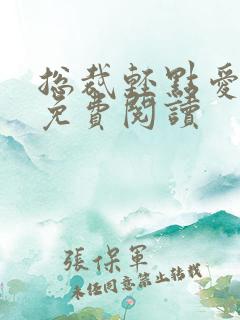 總裁輕點愛
免費閱讀
張保軍
未經同意禁止轉載